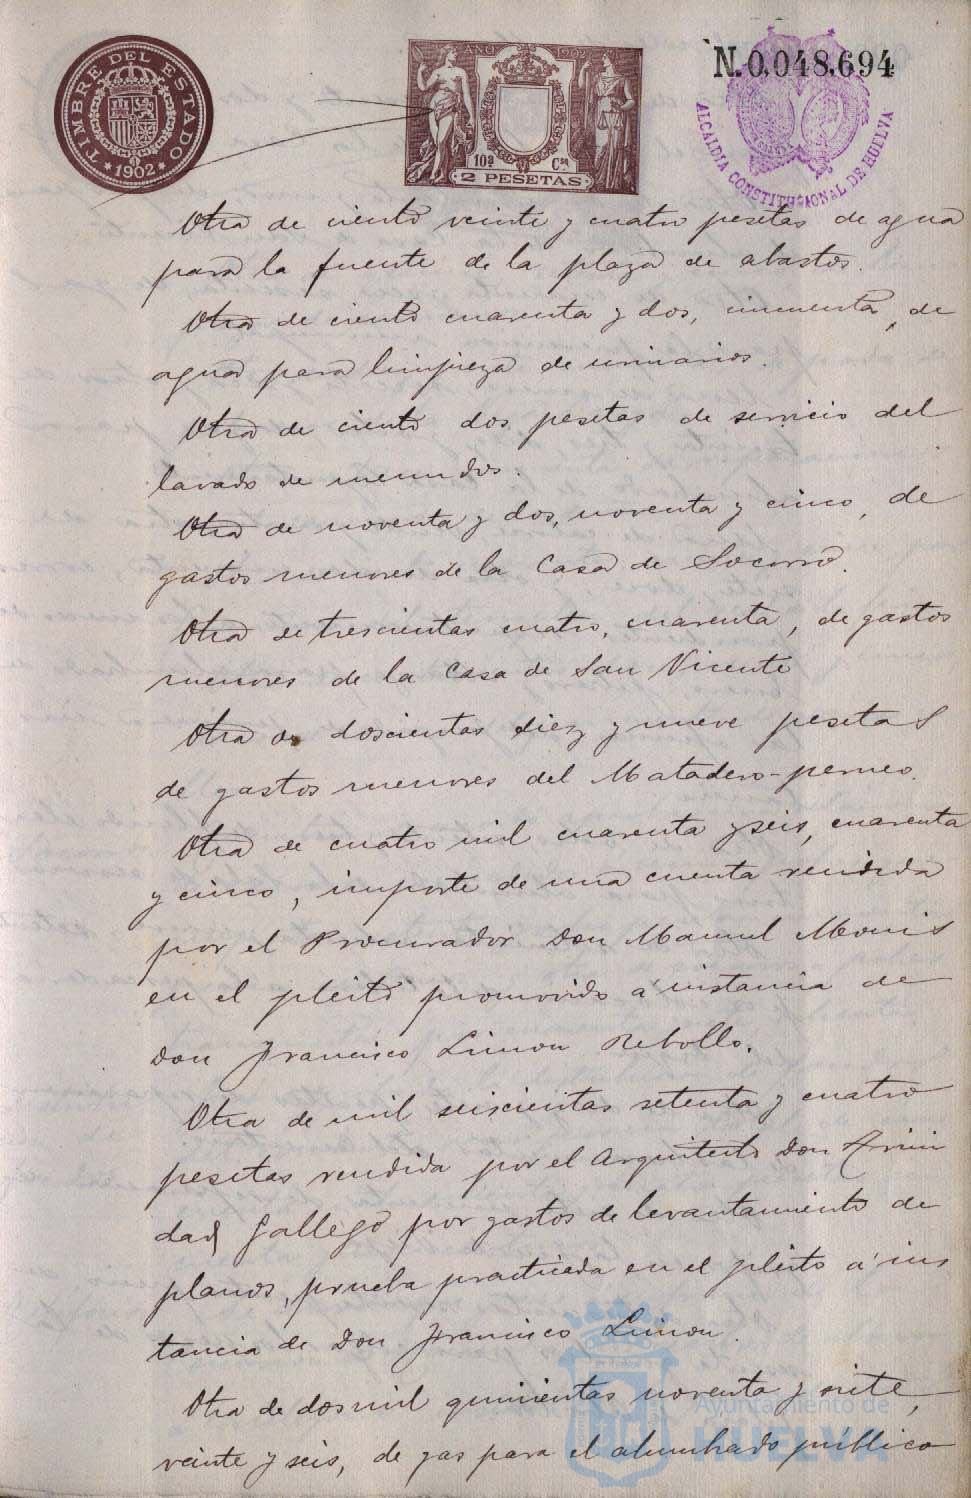 TIMBRE DEL ESTADO
* 1902 *
AÑO 1902
10ª Cse
2 PESETAS
N.0,048,694
ALCALDIA CONSTITUCIONAL DE HUELVA
Otra de ciento veinte y cuatro pesetas de agua
para la fuente de la plaza de abastos.
Otra de ciento cuarenta y dos, cincuenta, de
agua para limpieza de urinarios.
Otra de ciento dos pesetas de servicio del
lavado de menudos.
Otra de noventa y dos, noventa y cinco, de
gastos menores de la Casa de Socorro.
Otra de trescientas cuatro, cuarenta, de gastos
menores de la Casa de San Vicente
Otra de doscientas diez y nueve pesetas
de gastos menores del Matadero-perneo.
Otra de cuatro mil cuarenta y seis, cuarenta
y cinco, importe de una cuenta rendida
por el Procurador Don Manuel Monis
en el pleito promovido á instancia de
Don Francisco Limon Rebollo.
Otra de mil seiscientas setenta y cuatro
pesetas rendida por el Arquitecto Don Trini
dad Gallego por gastos de levantamiento de
planos, prueba practicada en el pleito á ins
tancia de Don Francisco Limon.
Otra de dos mil quinientas noventa y siete,
veinte y seis, de gas para el alumbrado público
Ayuntamiento de
HUELVA